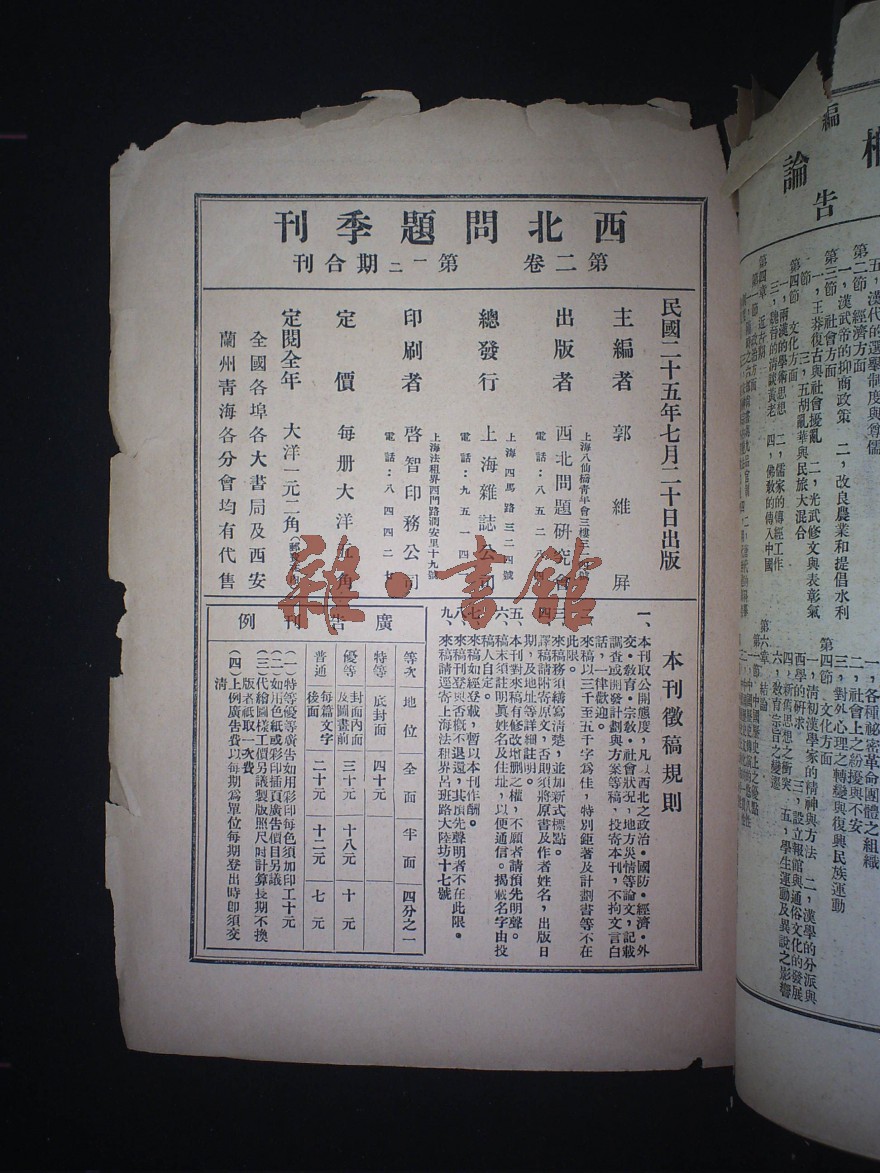 西北問題季刊
第二卷 第一二期合刊
民國二十五年七月二十日出版
主編者 郭維屏
出版者 西北問題研究會
上海八仙橋青年會三樓三
電話：八五二八四
總發行 上海雜誌公司
上海四馬路三二四號
電話：九五一四
印刷者 啓智印務公司
上海法租界西門路潤安里十九號
電話：八四四二七
定價 每册大洋五角
定閱全年 大洋一元二角
全國各埠各大書局及西安
蘭州靑海各分會均有代售
雜·書館
本刊徵稿規則
一、本刊取公開態度，凡以西北之政治·國防·經濟·外
交·敎育·宗敎·社會狀況，地方災情等論文，記載
調查或開發計劃與方案等稿，投寄本刊，不拘文言白
話，一律歡迎。
二、來稿以三千至五千字爲佳，特別鉅著及計劃書等不在
此限。
三、來稿務須繕寫淸楚，並加新式標點。
四、譯稿請附寄原文，否則須將原書及作者姓名，出版日
期，及地址等詳細註明。
五、本刊對來稿有修改增删之權，不願者請預先明聲。
六、稿末須註明眞姓名及住址，以便通信。揭載名字由投
稿人自定。
七、來稿如經登載，暫以本刊作酬。
八、來稿刊登與否槪不退還，其預先聲明者不在此限。
九、來稿請逕寄上海法租界呂班路大陸坊十七號
廣告刊例
等次 地位 全面 半面 四分之一
特等 底封面 四十元
優等 封面內面及圖畫前 三十元 十八元 十元
普通 每篇文字後面 二十元 十二元 七元
（一）特等優等廣告如用彩印每色須加印工十元
（二）如用色紙或彩印插頁廣告價目另議
（三）代繪圖樣工價另議製版照尺吋計算長期不換
版者祇取一次費
（四）上例廣告費以每期爲單位每期登出時卽須交
淸
編
論
告
五，漢代的選舉制度與尊儒
第二節 經濟方面
一，漢武帝的抑商政策 二，改良農業和提倡水利
第三節 社會方面
一，王莽復古與社會擾亂 二，光武修文與表彰氣
節 三，五胡亂華與民族大混合
第四節 文化方面
一，兩漢的學術思想 二，儒家的傳經工作
三，魏晉的淸談黃老 四，佛敎的傳入中國
第四章 近古期
一，各種祕密革命團體之組織
二，社會上之紛擾與不安
三，對外心理之轉變與復興民族運動
第四節 文化方面
一，淸初漢學家的精神與方法 二，漢學的分派與
西學的研求 三，設立報館與通俗文化的發展
四，新舊思想之衝突 五，學生運動及異說之影響
六，敎育宗旨之變遷
第六章 結論